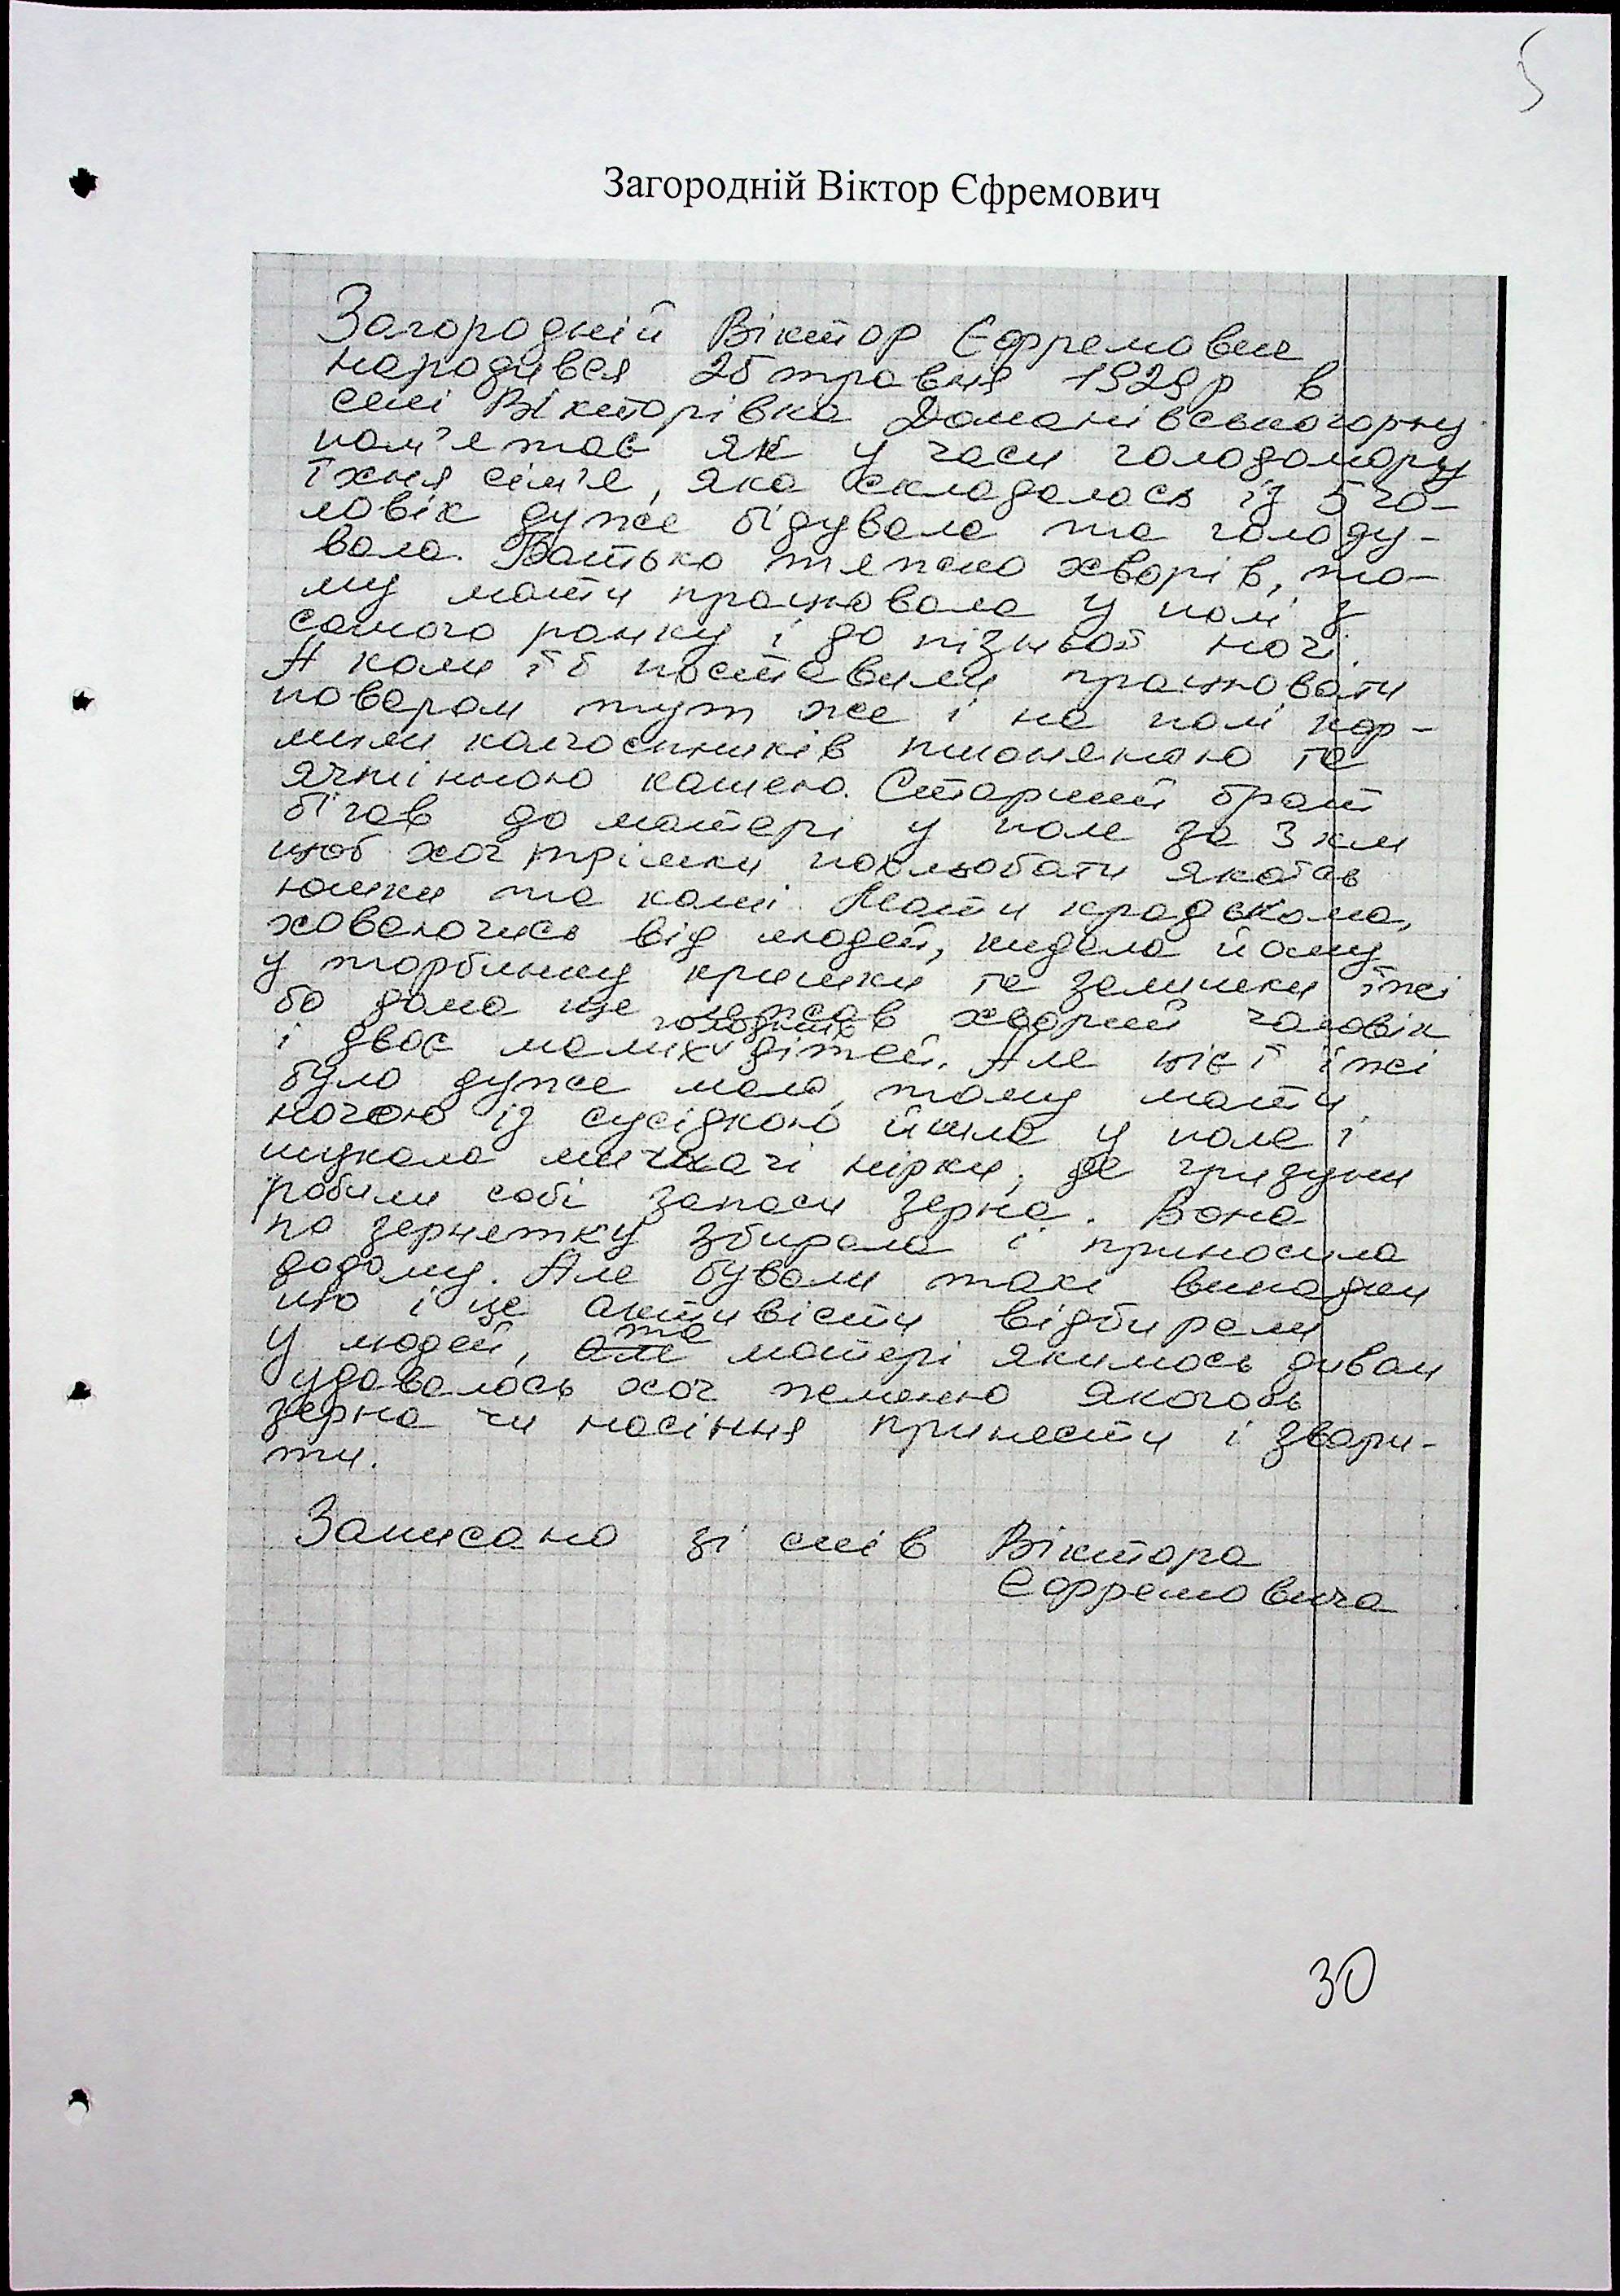 5
Загородній Віктор Єфремович
Загородній Віктор Єфремович
народився 25 травня 1929р в
селі Вікторівка Доманівського р-ну
пам'ятав як у часи голодомору
їхня сім'я, яка складалась із 5 чо-
ловік дуже бідувала та голоду-
вала. Батько тяжко хворів, то-
му мати працювала у полі з
самого ранку і до пізньої ночі.
А коли її поставили працювати
поваром тут же і на полі кор-
мили колгоспників пшоняною та
ячмінною кашею. Старший брат
бігав до матері у поле за 3 км
щоб хоч трішки похльобати якоїсь
юшки та каші. Мати крадькома,
ховаючись від людей, кидала йому
у торбинку кришки та залишки їжі
бо дома ще лежав хворий чоловік
і двоє малих голодних дітей. Але цієї їжі
було дуже мало, тому мати
ночою із сусідкою йшла у поле і
шукала мишачі нірки, де гризуни
робили собі запаси зерна. Вона
по зернятку збирала і приносила
додому. Але бували такі випадки
що і це активісти відбирали
у людей, але та матері якимось дивом
удавалось хоч жменю якогось
зерна чи насіння принести і звари-
ти.
Записано зі слів Віктора
Єфремовича
30